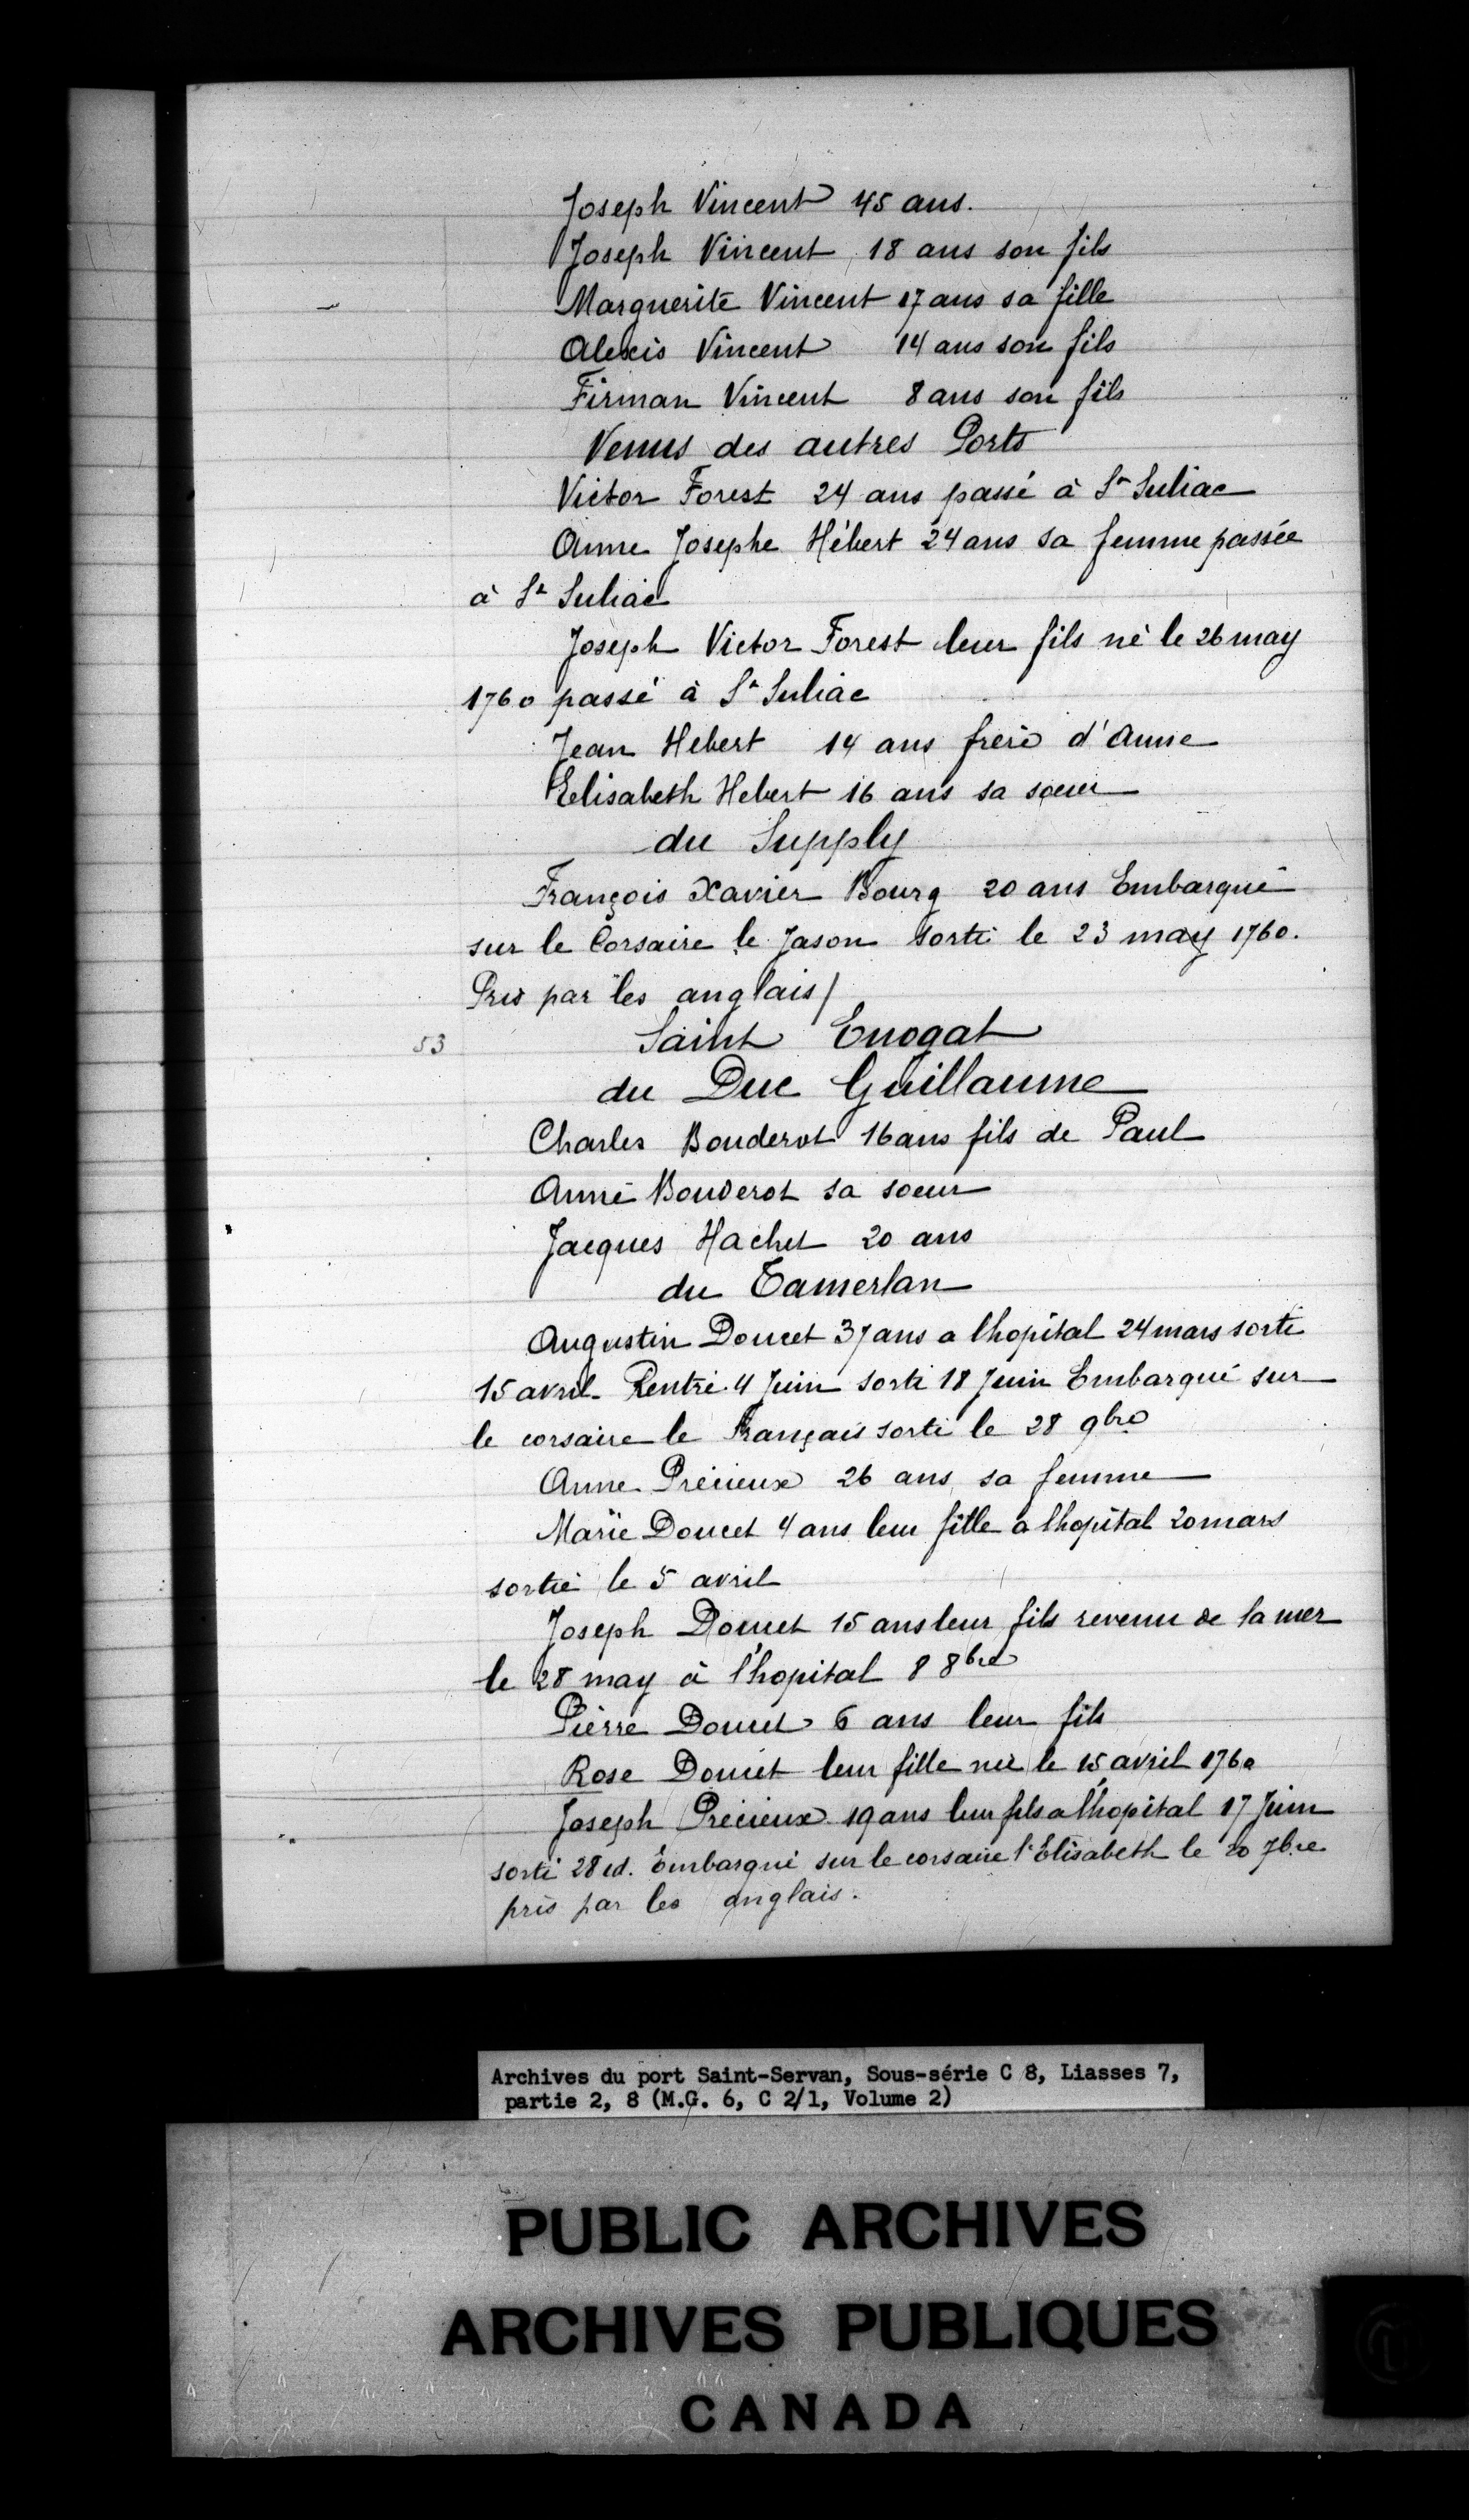 Joseph Vincent 45 ans.
Joseph Vincent 18 ans son fils
Marguerite Vincent 17 ans sa fille
Alexis Vincent 14 ans son fils
Firman Vincent 8 ans son fils
Venus des autres Ports
Victor Forest 24 ans passé à St Suliac
Anne Josephe Hébert 24 ans sa femme passée
à St Suliac
Joseph Victor Forest leur fils né le 26 may
1760 passé à St Suliac
Jean Hebert 14 ans frère d'Anne
Elisabeth Hebert 16 ans sa soeur
du Supply
François Xavier Bourg 20 ans Embarqué
sur le Corsaire le Jason sorti le 23 may 1760.
Pris par les anglais/
53 Saint Enogat
du Duc Guillaume
Charles Bouderot 16 ans fils de Paul
Anne Bouderot sa soeur
Jacques Hachet 20 ans
du Tamerlan
Augustin Doucet 37 ans a lhopital 24 mars sorti
15 avril. Rentré 4 Juin sorti 18 Juin Embarqué sur
le corsaire le Français sorti le 28 9bre
Anne Précieux 26 ans sa femme
Marie Doucet 4 ans leur fille a lhopital 20 mars
sortie le 5 avril
Joseph Doucet 15 ans leur fils revenu de la mer
le 28 may à l'hopital 8 8bre
Pierre Doucet 6 ans leur fils
Rose Doucet leur fille née le 15 avril 1760
Joseph Précieux 19 ans leur fils a l'hopital 17 Juin
sorti 28 id. Embarqué sur le corsaire l'Elisabeth le 20 7bre
pris par les anglais.
Archives du port Saint-Servan, Sous-série C 8, Liasses 7,
partie 2, 8 (M.G. 6, C 2/1, Volume 2)
PUBLIC ARCHIVES
ARCHIVES PUBLIQUES
CANADA